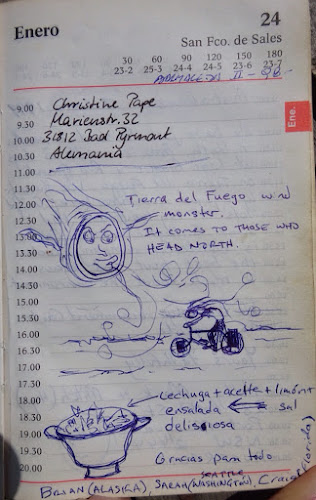 Enero
24
San Fco. de Sales
30 60 90 120 150 180
23-2 25-3 24-4 24-5 23-6 23-7
II - 98.
Ene.
9.00 Christine Pape
9.30 Marienstr. 32
10.00 31812 Bad Pyrmont
10.30 Alemania
11.00
11.30
12.00 Tierra del Fuego wind
12.30 monster.
13.00 It comes to those who
13.30 HEAD NORTH.
14.00
14.30
15.00
15.30
16.00
16.30
17.00
17.30
18.00 Lechuga + aceite + limón
18.30 ensalada sal
19.00 delisciosa
19.30
20.00 Gracias para todo
SEATTLE
BRIAN (ALASKA), SARAH (WASHINGTON), Craig (Florida)